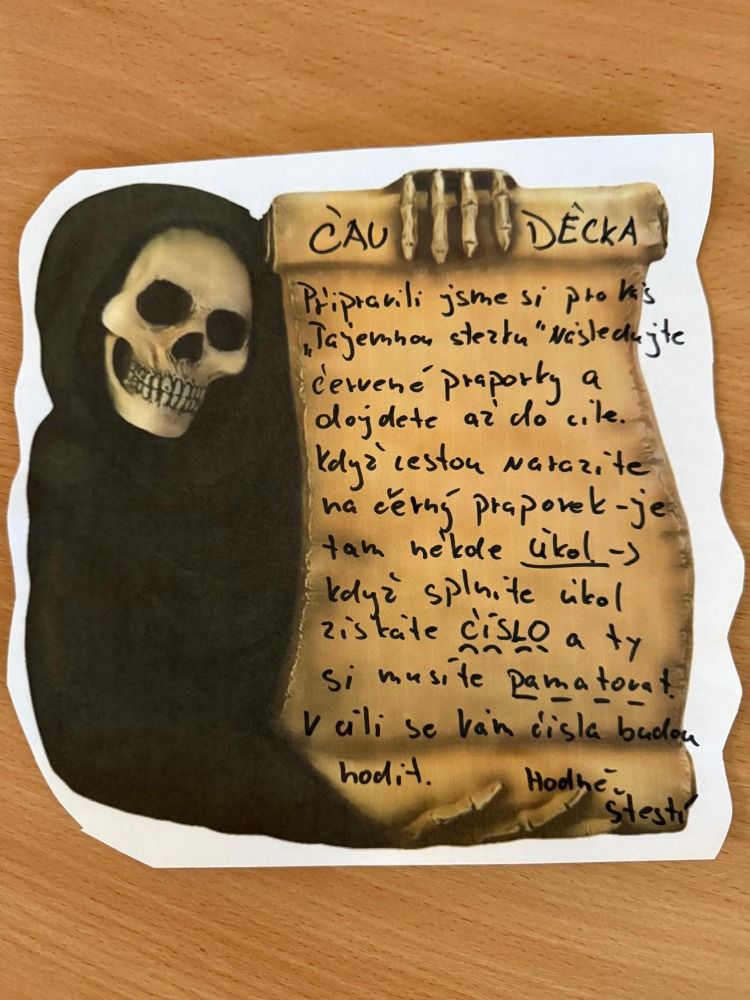 ČAU DĚCKA
Připravili jsme si pro vás
„Tajemnou stezku" Následujte
červené praporky a
dojdete až do cíle.
Když cestou narazíte
na černý praporek - je
tam někde úkol ->
když splníte úkol
získáte ČÍSLO a ty
si musíte pamatovat.
V cíli se Vám čísla budou
hodit. Hodně
štěstí